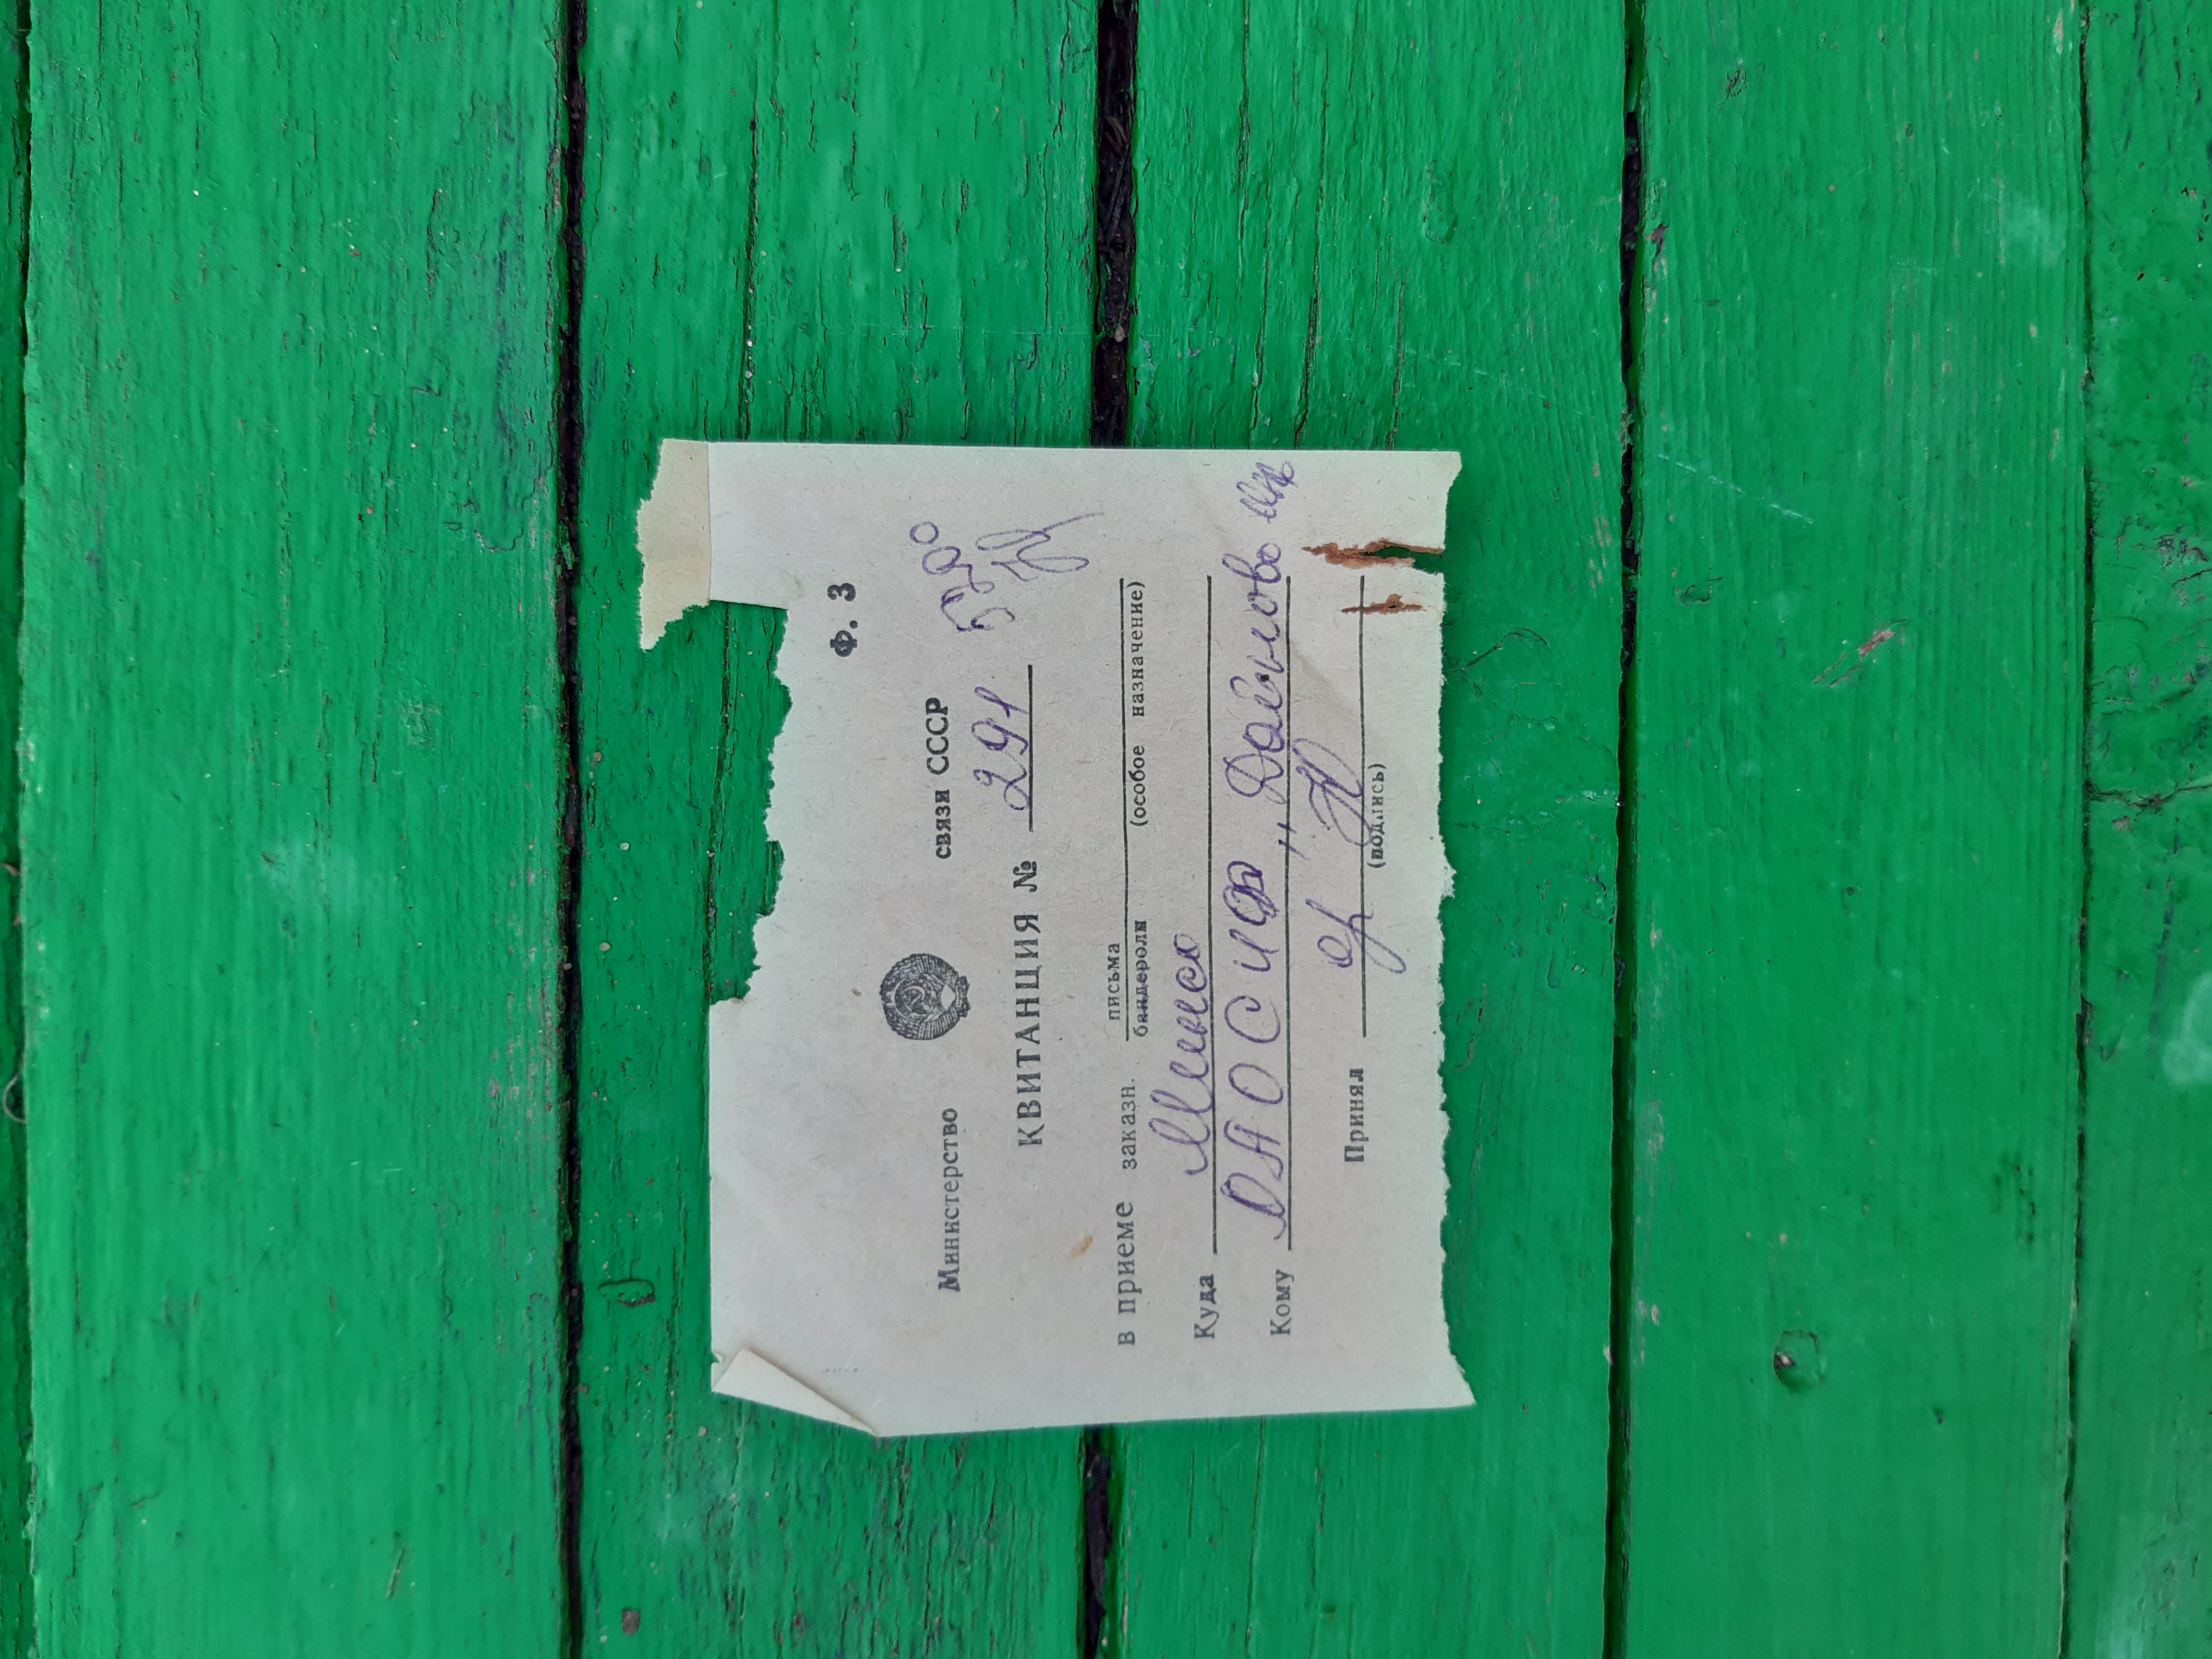 Ф. 3
Министерство связи СССР
5200
КВИТАНЦИЯ № 291
в приеме заказн. письма
бандероли (особое назначение)
Куда Минск
Кому ОАО СИФ „
Принял
(подпись)